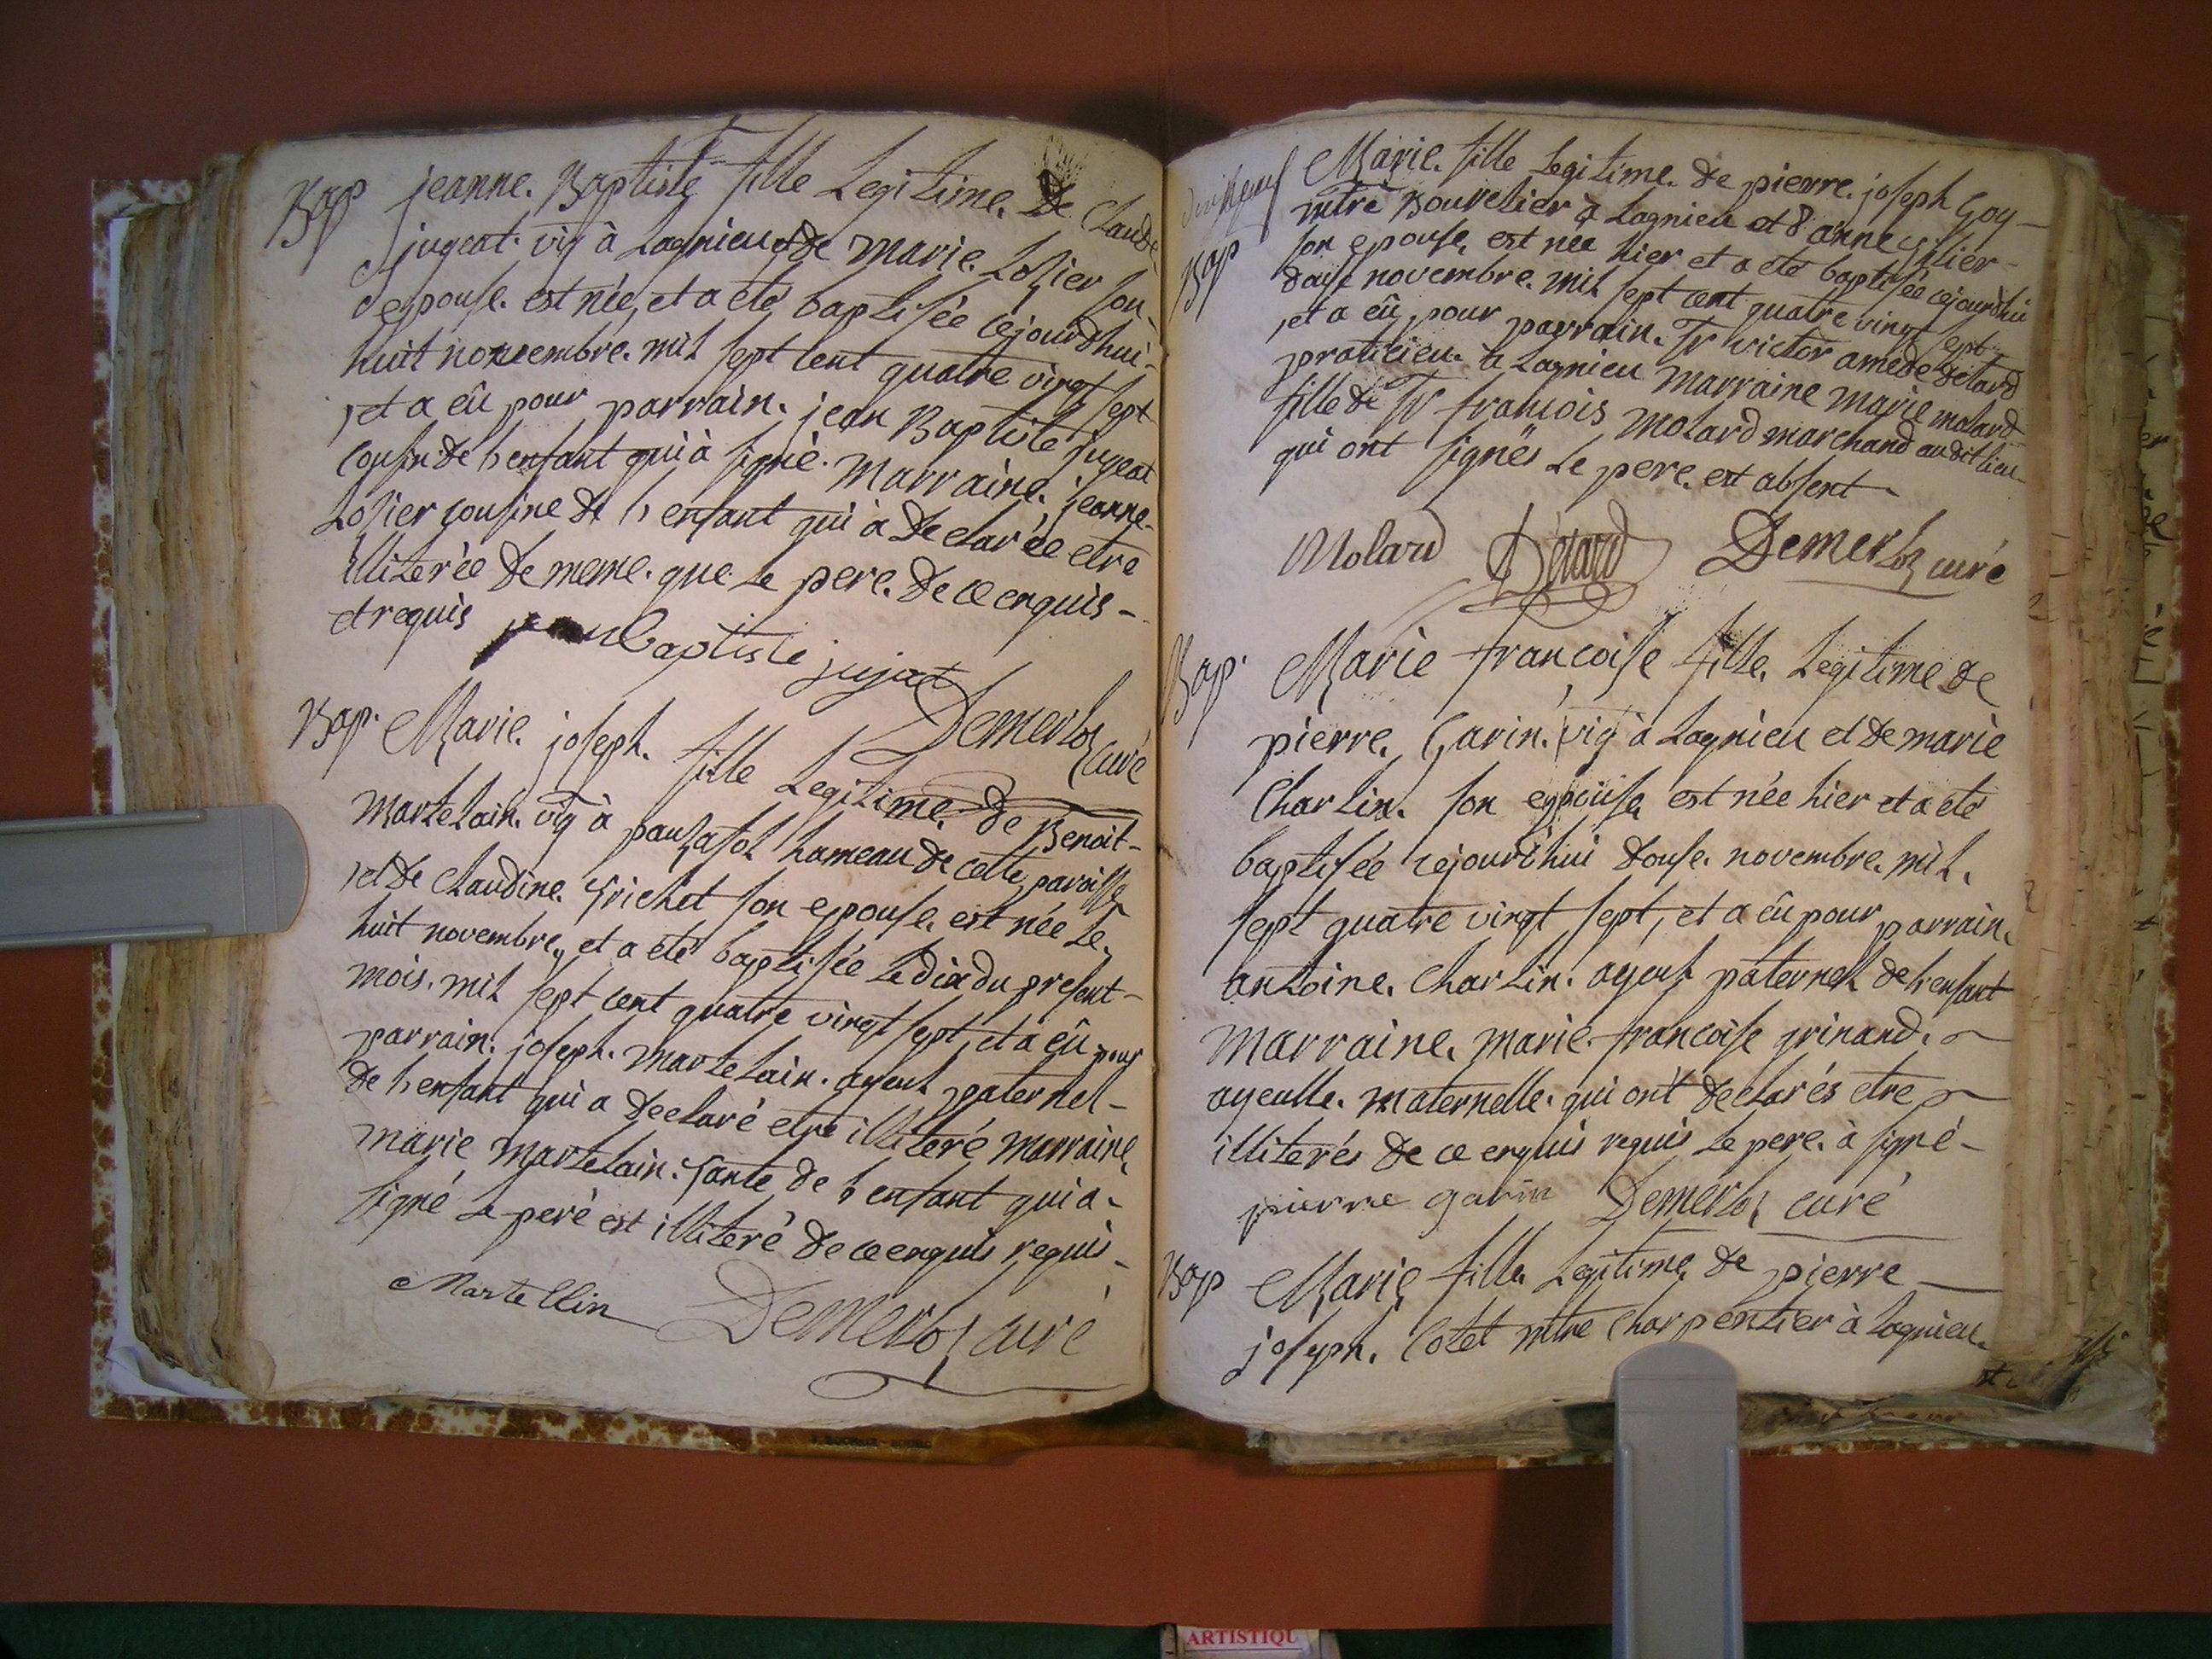 Bap jeanne. Baptiste fille Legitime. De Claude
jugeat. vig à Lagnieu et de marie. Losier son
epouse. est née, et a eté baptisée cejourdhui
huit novembre. mil sept cent quatre vingt sept
et a eû pour parrain. jean Baptiste jugeat
cousin de l'enfant qui à signé. marraine. jeanne
Losier cousine de l'enfant qui à declarée etre
illiterée de meme. que le pere. de ce enquis
et requis
jean Baptiste jujat
Demerloz curé
Bap. Marie. joseph. fille Legitime. de Benoit
martelain. vig à hameau de cette paroisse
et de Claudine. Trichet son epouse. est née le
huit novembre, et a eté baptisée le dix du present
mois. mil sept cent quatre vingt sept, et a eû pour
parrain. joseph. martelain. ayeul paternel
de l'enfant qui a declaré etre illiteré marraine
marie martelain. tante de l'enfant qui a
signé le peré est illiteré de ce enquis requis
Martellin Demerloz curé
Marie. fille Legitime. de pierre. joseph Goy
mtre Bourelier à Lagnieu et d'anne
Bap son epouse, est née hier et a eté baptisée cejourdhui
douse novembre. mil sept cent quatre vingt sept
et a eû pour parrain. Sr victor amedé détard
praticien. à Lagnieu marraine marie molard
fille de Sr francois molard marchand audit lieu
qui ont signés le pere. est absent
Molard Détard Demerloz curé
Bap. Marie francoise fille. Legitime de
pierre. Garin. vig à Lagnieu et de marie
Charlin. son epouse, est née hier et a eté
baptisée cejourdhui douse. novembre. mil.
sept quatre vingt sept, et a eû pour parrain.
antoine. Charlin. ayeul paternel de l'enfant
marraine. marie. francoise grinand.
ayeulle. maternelle. qui ont declarés etre
illiterés de ce enquis requis le pere. à signé
pierre garin Demerloz curé
Bap Marie fille Legitime. de pierre
joseph. Cotet mtre Charpentier à Lagnieu.
ARTISTIQU